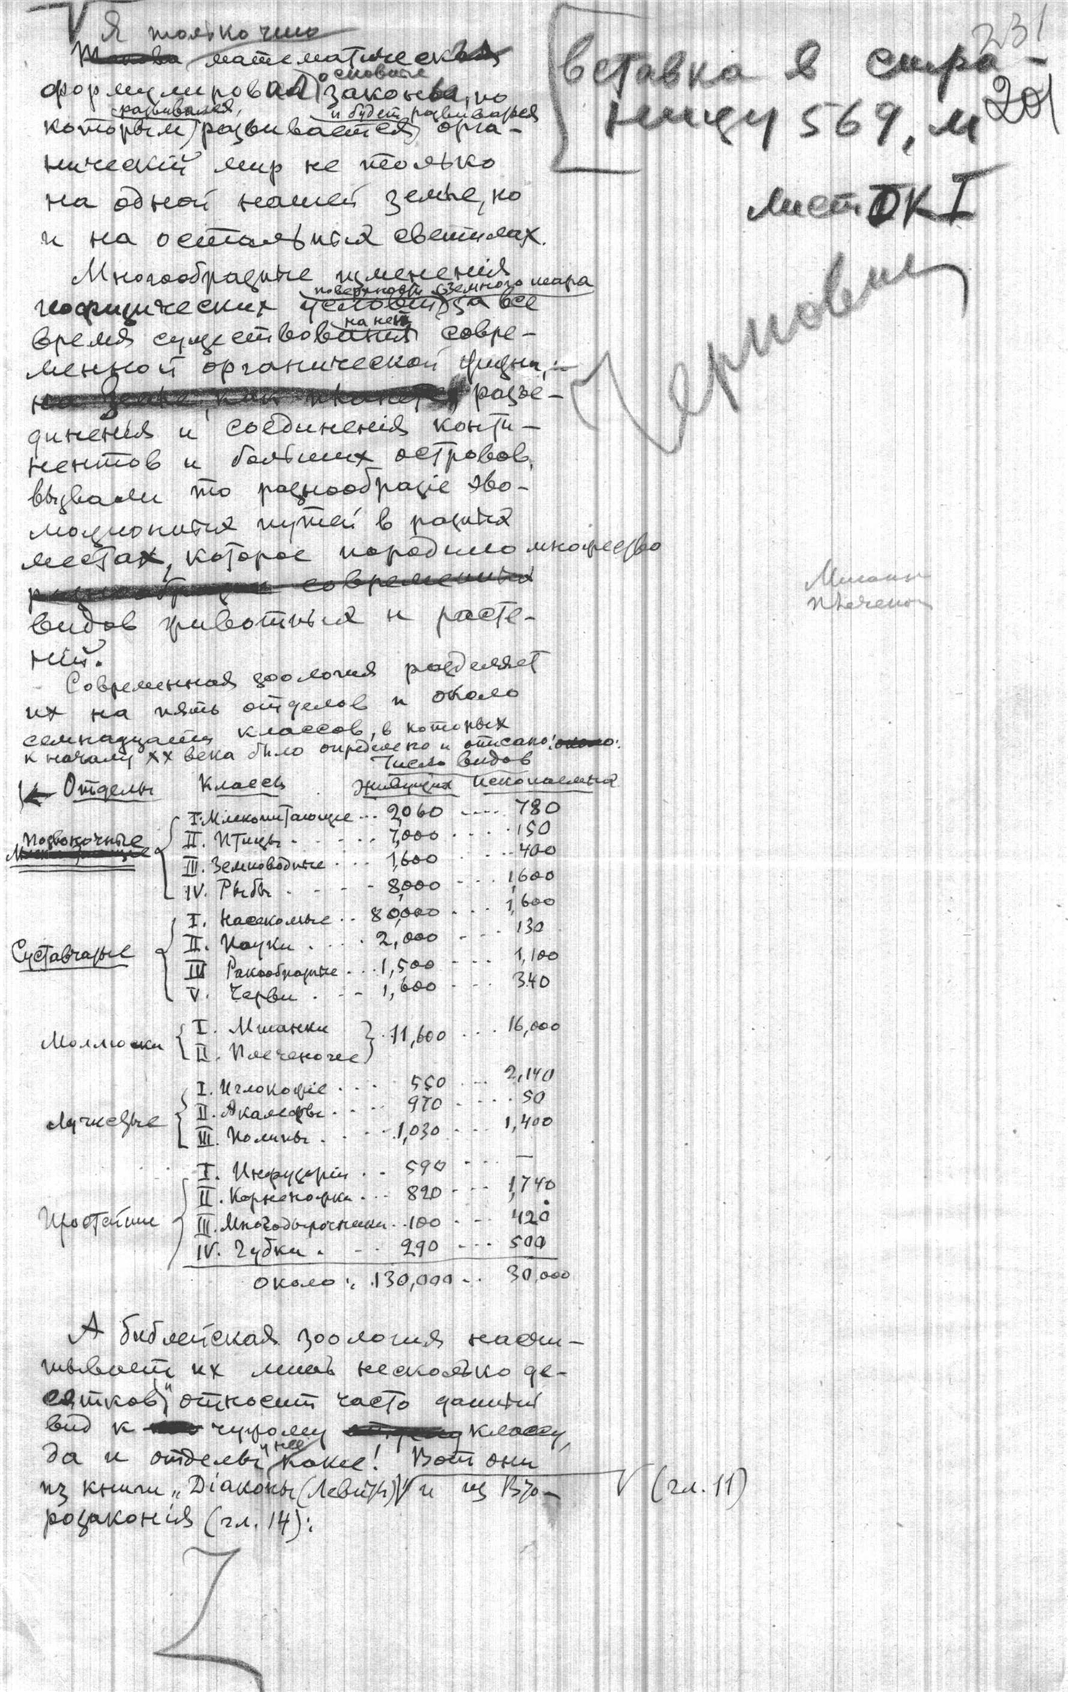 231
201
вставка в стра-
ницу 569, м
листок I
Черновик
Я только что
математически
формулировал основные законы, по
развивался, и будет развиваться
которым развивается орга-
нический мир не только
на одной нашей земле, но
и на остальных светилах.
Многообразные изменения
поверхности земного шара
геофизических условий за все
на ней
время существования совре-
менной органической жизни,
разъе-
динения и соединенія конти-
нентов и больших островов,
вызвали то разнообразіе эво-
люціонных путей в разных
местах, которое породило множество
современных
видов животных и расте-
ній.
Мшанки
плеченог
Современная зоология разделяет
их на пять отделов и около
семнадцати классов, в которых
к началу XX века было определено и описано около:
Число видов
Отделы Классы живущих ископаемых
Позвоночные
I. Млекопитающие ... 2060 .... 780
II. Птицы . . . . 7,000 .... 150
III. Земноводные ... 1,600 .... 400
IV. Рыбы . . . 8,000 ... 1,600
Суставчатые
I. Насекомые .. 80,000 ... 1,600
II. Пауки .... 2,000 ... 130
IV Ракообразные ... 1,500 ... 1,100
V. Черви . . . 1,600 ... 340
Моллюски
I. Мшанки
II. Плеченогие } 11,600 ... 16,000
Лучистые
I. Иглокожіе .... 550 ... 2,140
II. Акалефы .... 970 .... 50
III. Полипы .... 1,030 ... 1,400
Простейшие
I. Инфузоріи .. 590 ... —
II. Корненожки ... 820 ... 1,740
III. Многодырочники .. 100 ... 420
IV. Губки . . . 290 ... 500
около: 130,000 .. 30,000
А библейская зоология насчи-
тывает их лишь несколько де-
сятков, относит часто данный
вид к чужому классу,
да и отделы у нее какие! Вот они
из книги „Діаконы (Левиты) и из Вто-
(гл. 11)
розаконія (гл. 14):